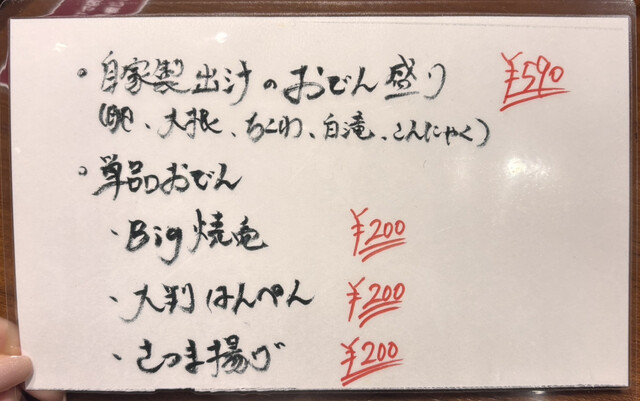 • 自家製出汁のおでん盛り ¥590
(卵、大根、ちくわ、白滝、こんにゃく)
• 単品おでん
・Big焼竜 ¥200
・大判はんぺん ¥200
・さつま揚げ ¥200